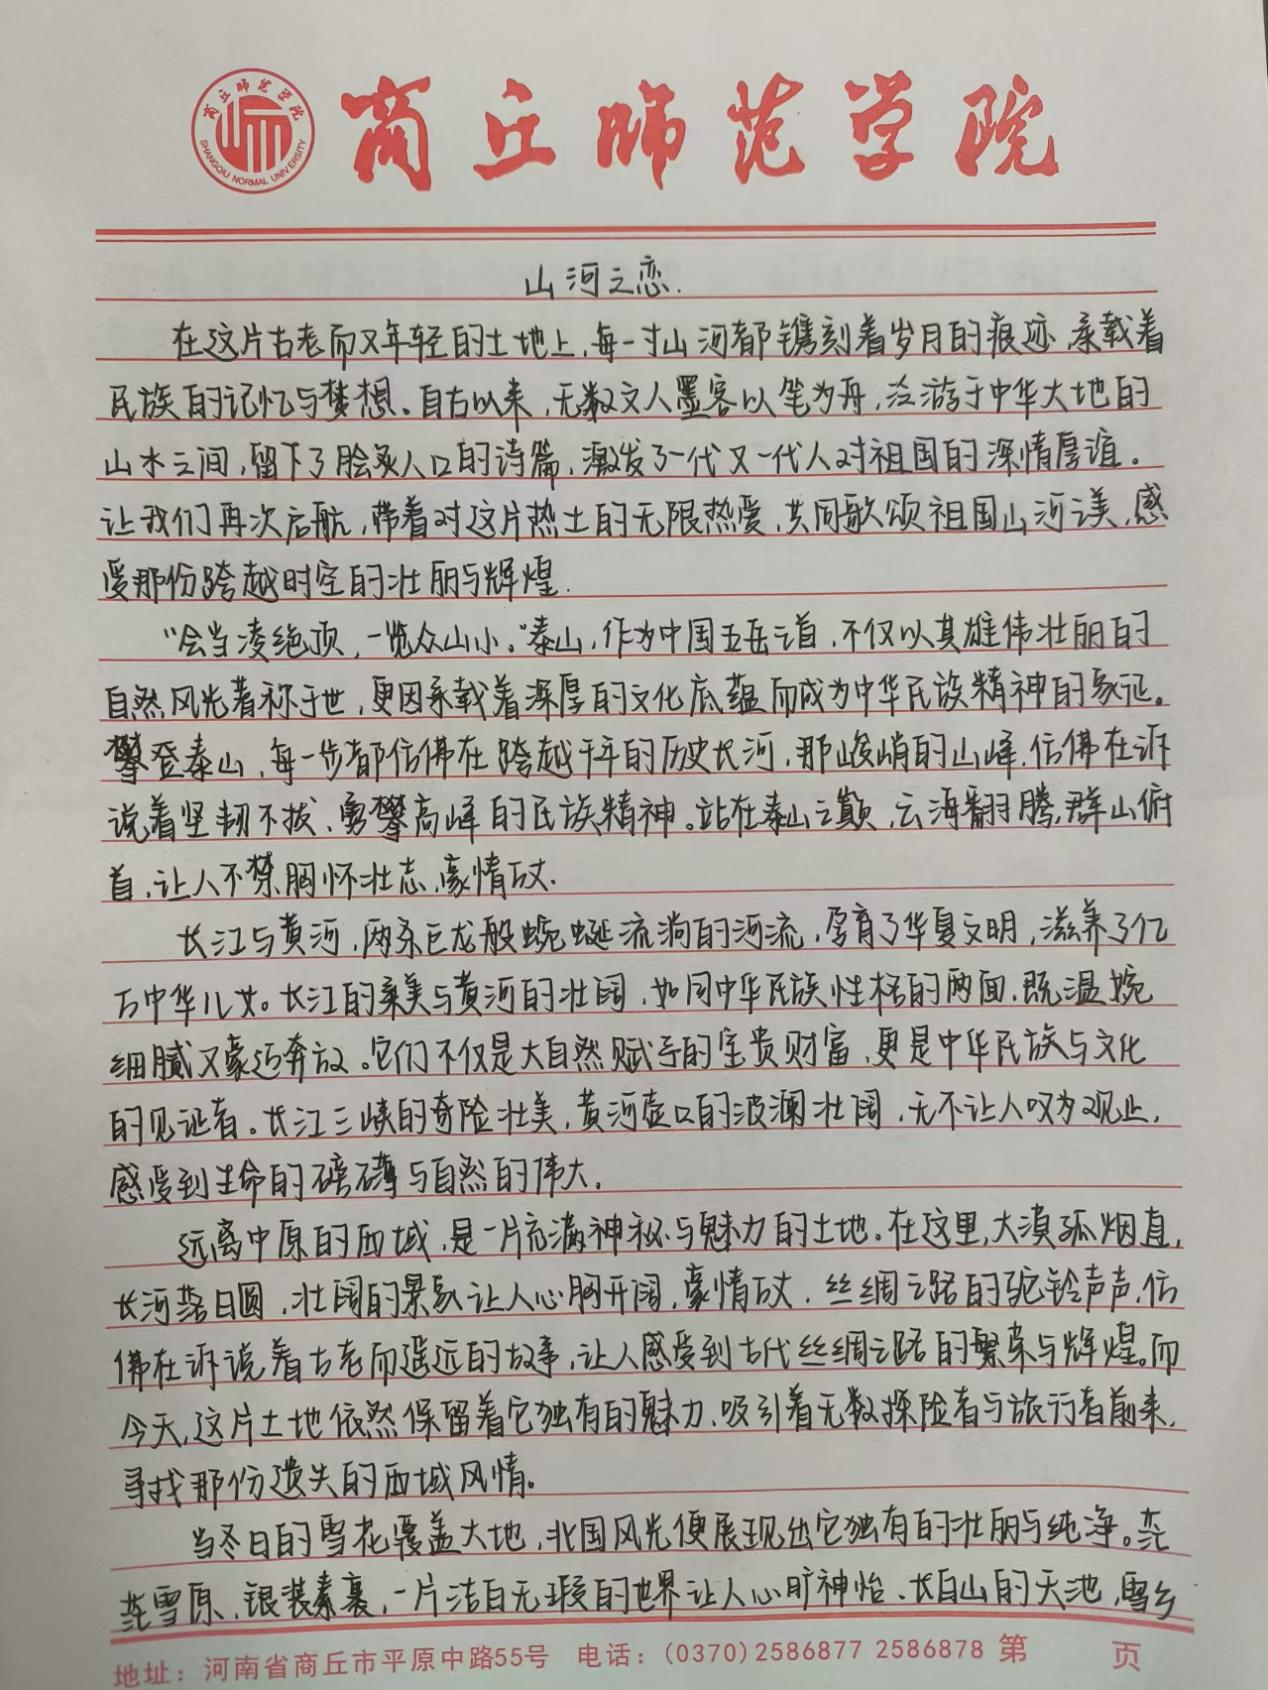 商丘师范学院
商丘师范学院
SHANGQIU NORMAL UNIVERSITY
山河之恋.
在这片古老而又年轻的土地上,每一寸山河都镌刻着岁月的痕迹,承载着
民族的记忆与梦想。自古以来,无数文人墨客以笔为舟,泛游于中华大地的
山水之间,留下了脍炙人口的诗篇,激发了一代又一代人对祖国的深情厚谊。
让我们再次启航,带着对这片热土的无限热爱,共同歌颂祖国山河之美,感
受那份跨越时空的壮丽与辉煌.
“会当凌绝顶,一览众山小。”泰山,作为中国五岳之首,不仅以其雄伟壮丽的
自然风光著称于世,更因承载着深厚的文化底蕴而成为中华民族精神的象征。
攀登泰山,每一步都仿佛在跨越千年的历史长河,那峻峭的山峰,仿佛在诉
说着坚韧不拔、勇攀高峰的民族精神。站在泰山之巅,云海翻腾,群山俯
首,让人不禁胸怀壮志,豪情万丈.
长江与黄河,两条巨龙般蜿蜒流淌的河流,孕育了华夏文明,滋养了亿
万中华儿女。长江的柔美与黄河的壮阔,如同中华民族性格的两面,既温婉
细腻又豪迈奔放。它们不仅是大自然赋予的宝贵财富,更是中华民族与文化
的见证者。长江三峡的奇险壮美,黄河壶口的波澜壮阔,无不让人叹为观止,
感受到生命的磅礴与自然的伟大.
远离中原的西域,是一片充满神秘与魅力的土地。在这里,大漠孤烟直,
长河落日圆,壮阔的景象让人心胸开阔,豪情万丈.丝绸之路的驼铃声声,仿
佛在诉说着古老而遥远的故事,让人感受到古代丝绸之路的繁荣与辉煌。而
今天,这片土地依然保留着它独有的魅力,吸引着无数探险者与旅行者前来,
寻找那份遗失的西域风情。
当冬日的雪花覆盖大地,北国风光便展现出它独有的壮丽与纯净。茫
茫雪原,银装素裹,一片洁白无瑕的世界让人心旷神怡、长白山的天池,雪乡
地址:河南省商丘市平原中路55号 电话:(0370)2586877 2586878 第 页